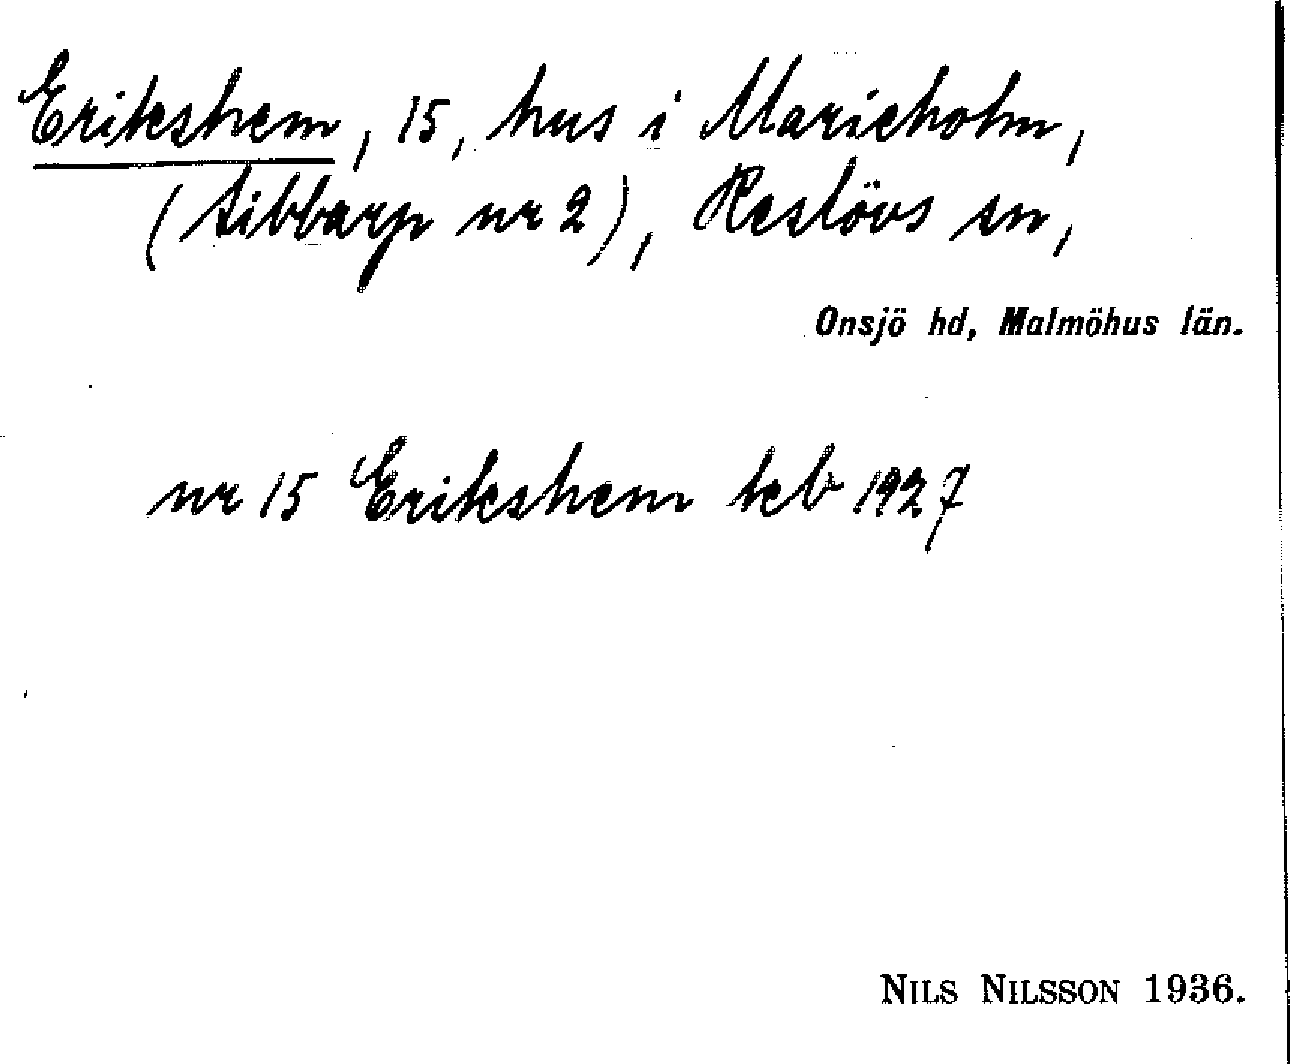 Erikshem, 15, hus i Marieholm,
(Sibbarp nr 2), Reslövs sn,
Onsjö hd, Malmöhus län.
nr 15 Erikshem kb 1927
NILS NILSSON 1936.